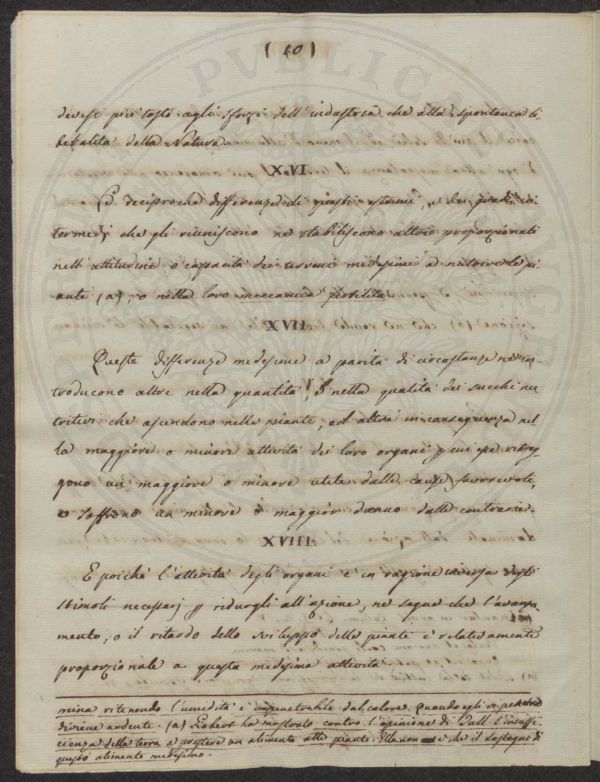 ( 10 )
devesi più tosto agli sforzi dell' industria che alla spontanea li
beralità della Natura
XVI
Le reciproche differenze di questi estremi, e dei gradi in
termedj che gli riuniscono ne stabiliscono altre proporzionati
nell' attitudine o capacità dei terreni medesimi a nutrire le pi
ante (a), o nella loro meccanica
XVII
Queste differenze medesime a parità di circostanze ne in
troducono altre nella quantità, e nella qualità dei succhi nu
tritivi che ascendono nelle piante, ed altre in consequenza nel
la maggiore o minore attività dei loro organi p cui esse ritrag
gono un maggiore o minore utile dalle cause favorevole,
o soffrono un minore o maggior danno dalle contrarie.
XVIII
E poichè l'attività degli organi è in ragione inversa degli
stimoli necessarj p ridurgli all'azione, ne segue che l'avanza
mento, o il ritardo dello sviluppo delle piante è relativamente
proporzionale a questa medesima attività
mina ritenendo l'umidità è impenetrabile dal calore. Quando egli vi penetra
diviene ardente. (a) ha mostrato contro l'opinione di l'insuffi
cienza della terra a prestare un alimento alle piante: Ella non è che il sostegno di
questo alimento medesimo.